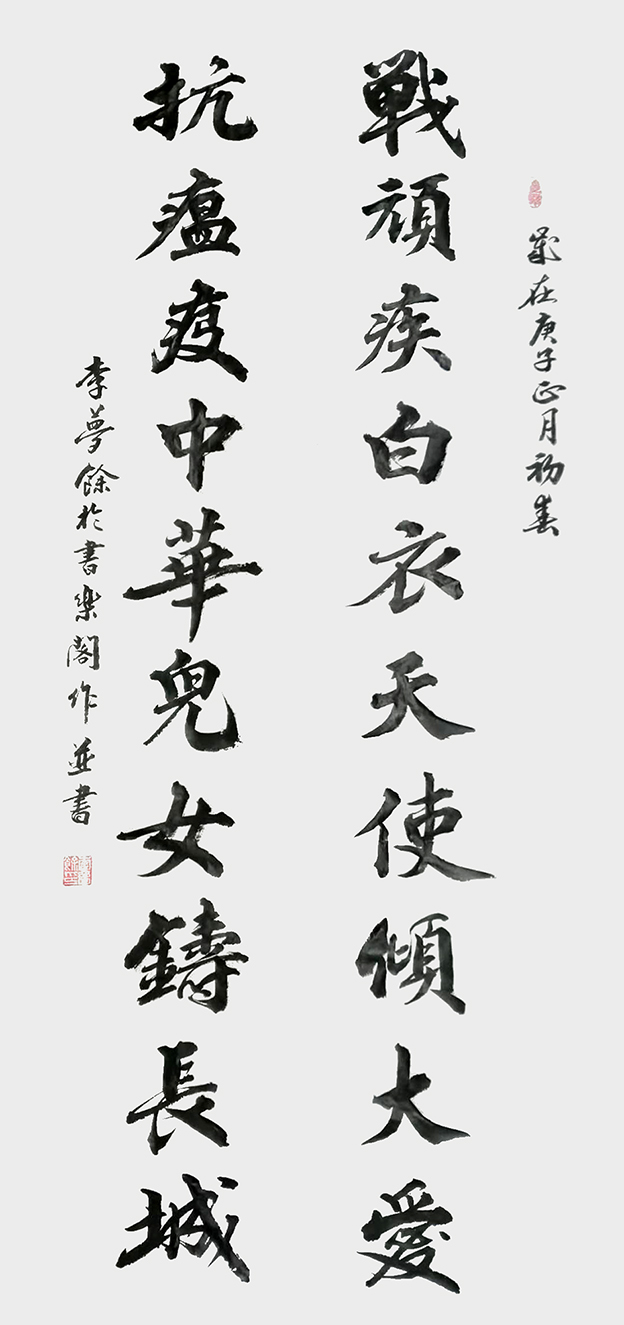 歲在庚子正月初春
戰頑疾白衣天使傾大愛
抗瘟疫中華兒女鑄長城
李夢餘於書樂閣作並書